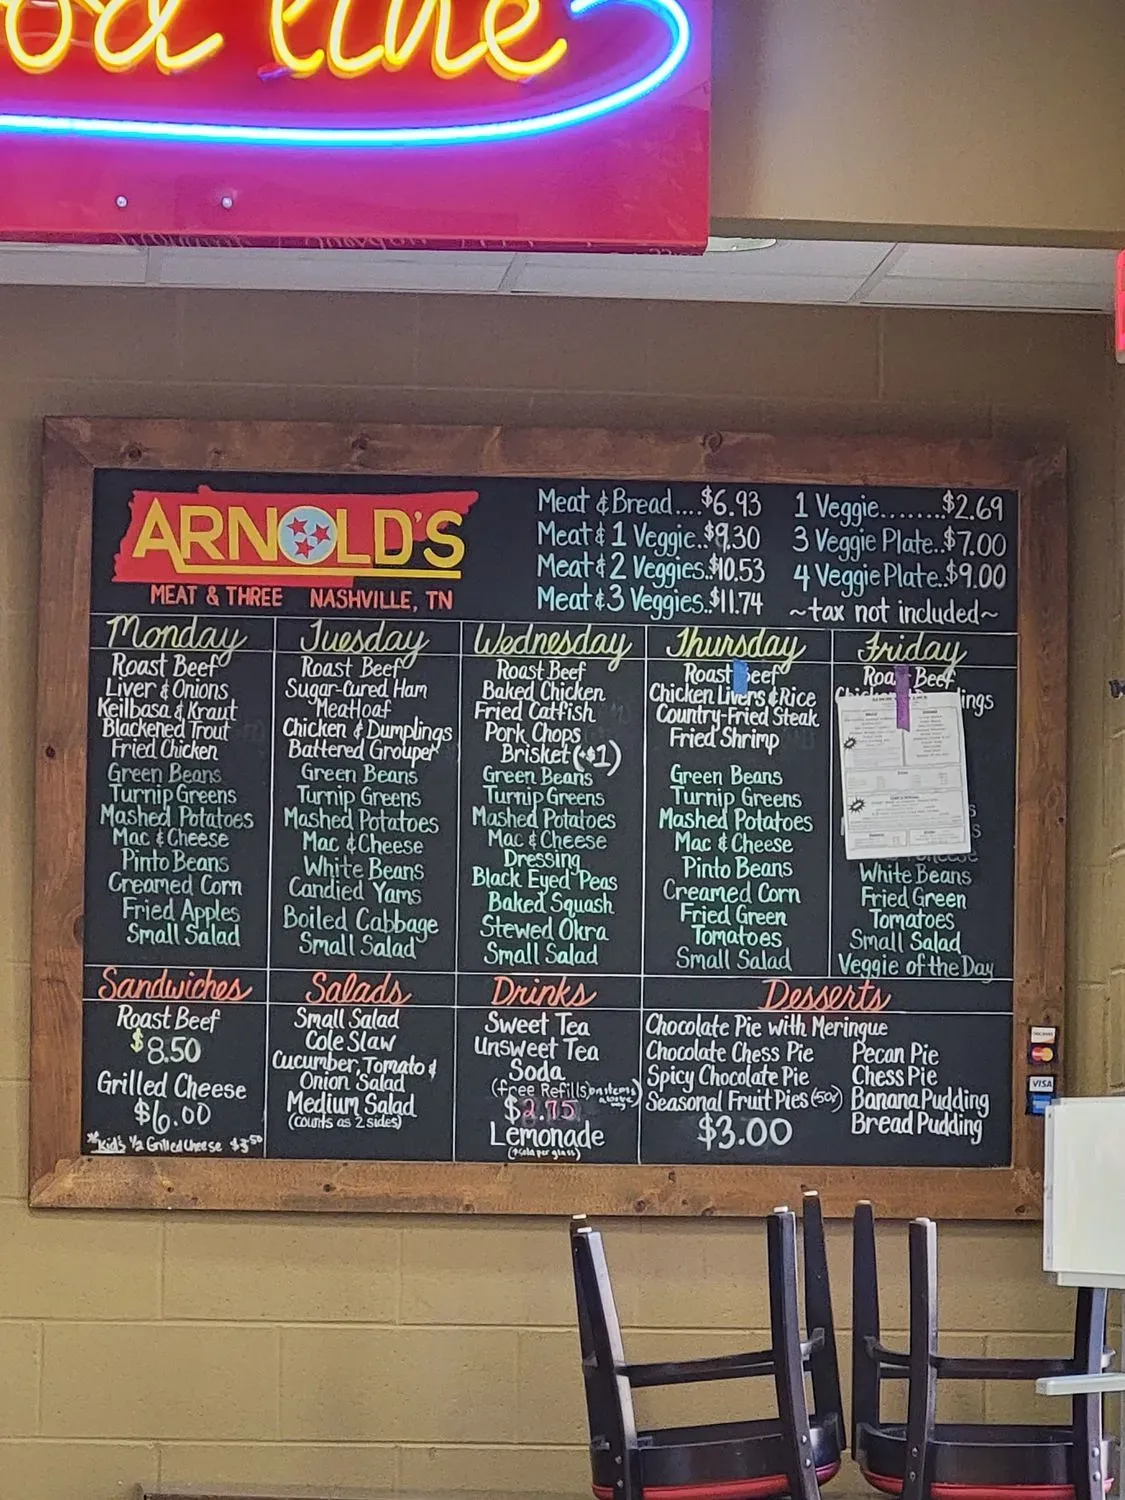 ood line
ARNOLD'S
MEAT & THREE NASHVILLE, TN
Meat & Bread....$6.93
Meat & 1 Veggie..$9.30
Meat & 2 Veggies..$10.53
Meat & 3 Veggies..$11.74
1 Veggie........$2.69
3 Veggie Plate..$7.00
4 Veggie Plate..$9.00
~tax not included~
Monday
Roast Beef
Liver & Onions
Keilbasa & Kraut
Blackened Trout
Fried Chicken
Green Beans
Turnip Greens
Mashed Potatoes
Mac & Cheese
Pinto Beans
Creamed Corn
Fried Apples
Small Salad
Tuesday
Roast Beef
Sugar-Cured Ham
Meatloaf
Chicken & Dumplings
Battered Grouper
Green Beans
Turnip Greens
Mashed Potatoes
Mac & Cheese
White Beans
Candied Yams
Boiled Cabbage
Small Salad
Wednesday
Roast Beef
Baked Chicken
Fried Catfish
Pork Chops
Brisket (+$1)
Green Beans
Turnip Greens
Mashed Potatoes
Mac & Cheese
Dressing
Black Eyed Peas
Baked Squash
Stewed Okra
Small Salad
Thursday
Roast Beef
Chicken Livers & Rice
Country-Fried Steak
Fried Shrimp
Green Beans
Turnip Greens
Mashed Potatoes
Mac & Cheese
Pinto Beans
Creamed Corn
Fried Green
Tomatoes
Small Salad
Friday
Roast Beef
White Beans
Fried Green
Tomatoes
Small Salad
Veggie of the Day
Sandwiches
Roast Beef
$8.50
Grilled Cheese
$6.00
*Kid's 1/2 Grilled Cheese $3.50
Salads
Small Salad
Cole Slaw
Cucumber, Tomato &
Onion Salad
Medium Salad
(counts as 2 sides)
Drinks
Sweet Tea
Unsweet Tea
Soda
(free Refills
$2.75
Lemonade
per glass)
Desserts
Chocolate Pie with Meringue
Chocolate Chess Pie
Spicy Chocolate Pie
Seasonal Fruit Pies (+50¢)
$3.00
Pecan Pie
Chess Pie
Banana Pudding
Bread Pudding
VISA